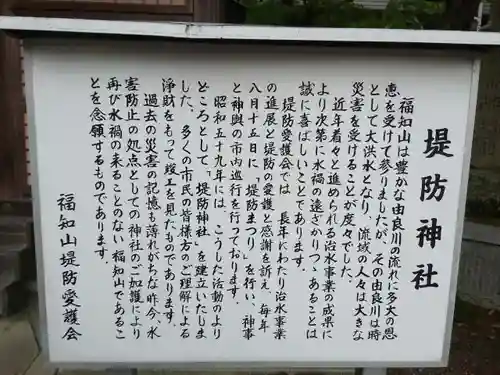 堤防神社
福知山は豊かな由良川の流れに多大の恩
恵を受けて参りましたが、その由良川は時
として大洪水となり、流域の人々は大きな
災害を受けることが度々でした。
近年着々と進められる治水事業の成果に
より次第に水禍の遠ざかりつゝあることは
誠に喜ばしいことであります。
堤防愛護会では、長年にわたり治水事業
の進展と堤防の愛護と感謝を訴え、毎年
八月十五日に「堤防まつり」を行い、神事
と神輿の市内巡行を行っております。
昭和五十九年には、こうした活動のより
どころとして「堤防神社」を建立いたしま
した。多くの市民の皆様方のご理解による
浄財をもって竣工を見たものであります。
過去の災害の記憶も薄れがちな昨今、水
害防止の処点としての神社のご加護により
再び水禍の来ることのない福知山であるこ
とを念願するものであります。
福知山堤防愛護会